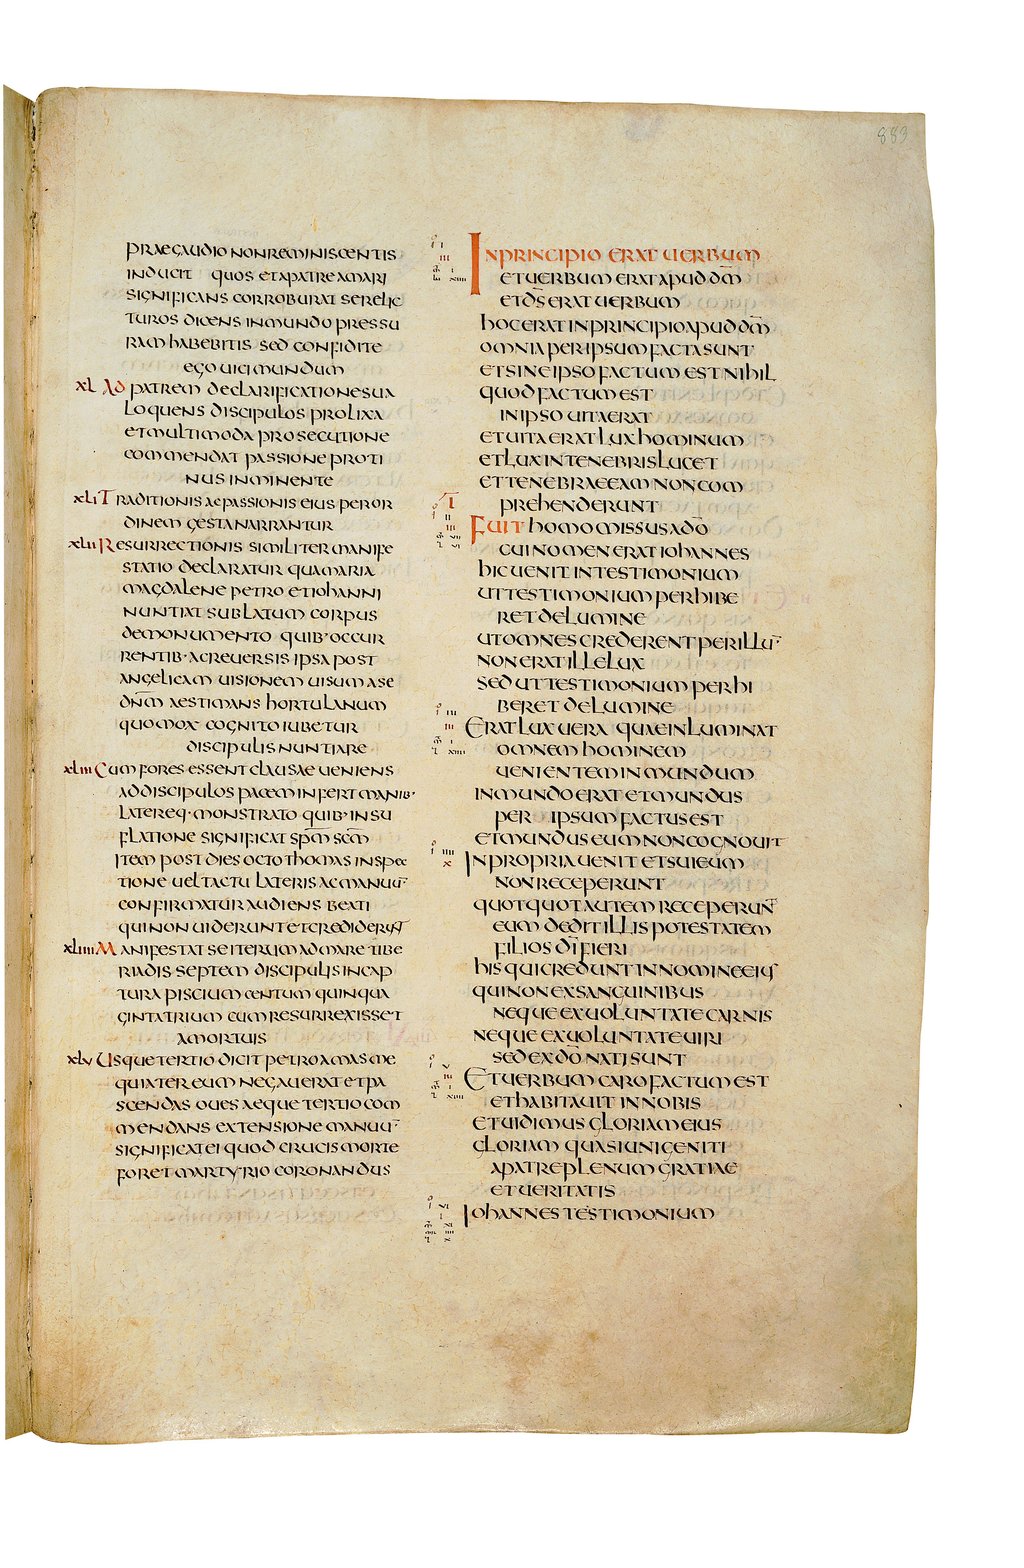 883
PRAEGAUDIO NON REMINISCENTIS
INDUCIT QUOS ET A PATRE AMARI
SIGNIFICANS CORROBORAT SE RELIC
TUROS DICENS IN MUNDO PRESSU
RAM HABEBITIS SED CONFIDITE
EGO UICI MUNDUM
XL AD PATREM DE CLARIFICATIONE SUA
LOQUENS DISCIPULOS PROLIXA
ET MULTIMODA PROSECUTIONE
COMMENDAT PASSIONE PROTI
NUS INMINENTE
XLI TRADITIONIS AC PASSIONIS EIUS PER OR
DINEM GESTA NARRANTUR
XLII RESURRECTIONIS SIMILITER MANIFE
STATIO DECLARATUR QUA MARIA
MAGDALENE PETRO ET IOHANNI
NUNTIAT SUBLATUM CORPUS
DE MONUMENTO QUIB· OCCUR
RENTIB· AC REUERSIS IPSA POST
ANGELICAM UISIONEM UISUM A SE
DN̄M AESTIMANS HORTULANUM
QUO MOX COGNITO IUBETUR
DISCIPULIS NUNTIARE
XLIII CUM FORES ESSENT CLAUSAE UENIENS
AD DISCIPULOS PACEM INFERT MANIB·
LATEREQ· MONSTRATO QUIB· INSU
FLATIONE SIGNIFICAT SPM̄ SCM̄
ITEM POST DIES OCTO THOMAS INSPEC
TIONE UEL TACTU LATERIS AC MANUU̅
CONFIRMATUR AUDIENS BEATI
QUI NON UIDERUNT ET CREDIDERUNT
XLIIII MANIFESTAT SE ITERUM AD MARE TIBE
RIADIS SEPTEM DISCIPULIS IN CAP
TURA PISCIUM CENTUM QUINQUA
GINTA TRIUM CUM RESURREXISSET
A MORTUIS
XLV USQUE TERTIO DICIT PETRO AMAS ME
QUIA TER EUM NEGAUERAT ET PA
SCENDAS OUES AEQUE TERTIO COM
MENDANS EXTENSIONE MANUU̅
SIGNIFICAT EI QUOD CRUCIS MORTE
FORET MARTYRIO CORONANDUS
IN PRINCIPIO ERAT UERBUM
ET UERBUM ERAT APUD DM̄
ET DS̄ ERAT UERBUM
HOC ERAT IN PRINCIPIO APUD DM̄
OMNIA PER IPSUM FACTA SUNT
ET SINE IPSO FACTUM EST NIHIL
QUOD FACTUM EST
IN IPSO UITA ERAT
ET UITA ERAT LUX HOMINUM
ET LUX IN TENEBRIS LUCET
ET TENEBRAE EAM NON COM
PREHENDERUNT
FUIT HOMO MISSUS A DO̅
CUI NOMEN ERAT IOHANNES
HIC UENIT IN TESTIMONIUM
UT TESTIMONIUM PERHIBE
RET DE LUMINE
UT OMNES CREDERENT PER ILLU̅
NON ERAT ILLE LUX
SED UT TESTIMONIUM PERHI
BERET DE LUMINE
ERAT LUX UERA QUAE INLUMINAT
OMNEM HOMINEM
UENIENTEM IN MUNDUM
IN MUNDO ERAT ET MUNDUS
PER IPSUM FACTUS EST
ET MUNDUS EUM NON COGNOUIT
IN PROPRIA UENIT ET SUI EUM
NON RECEPERUNT
QUOTQUOT AUTEM RECEPERUNT
EUM DEDIT ILLIS POTESTATEM
FILIOS DI̅ FIERI
HIS QUI CREDUNT IN NOMINE EIUS
QUI NON EX SANGUINIBUS
NEQUE EX UOLUNTATE CARNIS
NEQUE EX UOLUNTATE UIRI
SED EX DO̅ NATI SUNT
ET UERBUM CARO FACTUM EST
ET HABITAUIT IN NOBIS
ET UIDIMUS GLORIAM EIUS
GLORIAM QUASI UNIGENITI
A PATRE PLENUM GRATIAE
ET UERITATIS
IOHANNES TESTIMONIUM